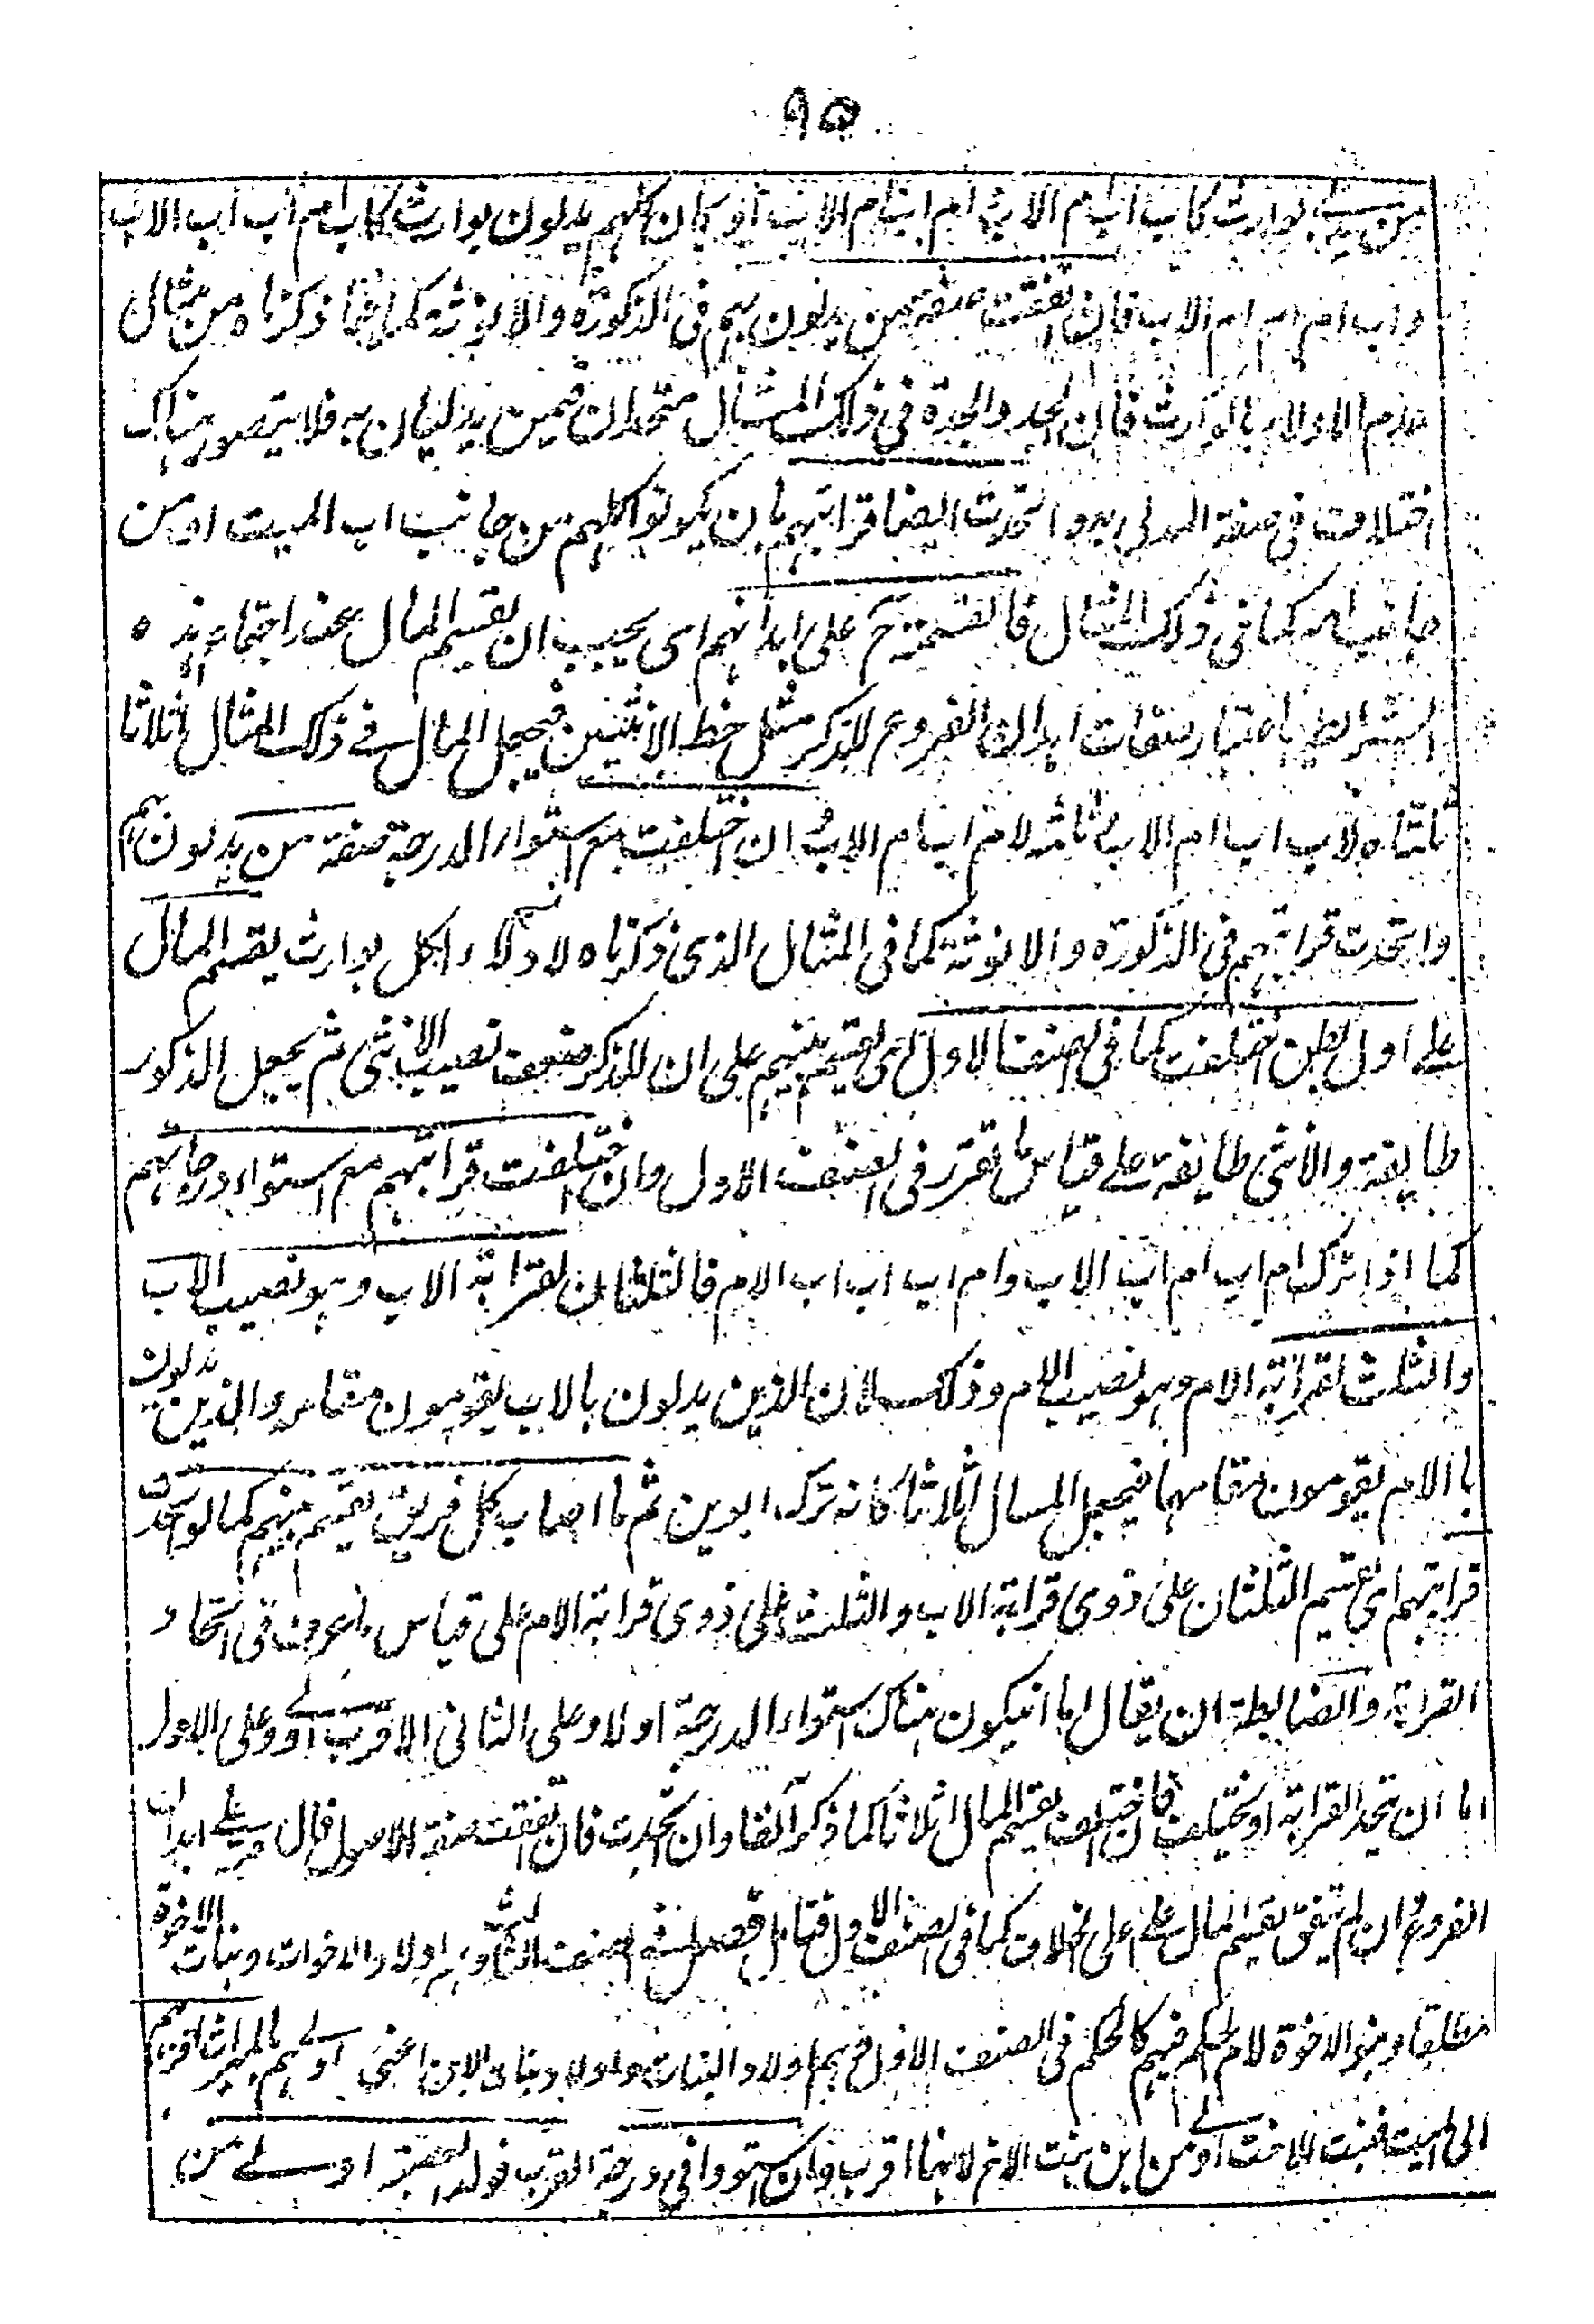 ٩٥
من يدلے بوارث كاب اب ام الاب و ام اب ام الاب او كان كلهم يدلون بوارث كاب ام اب اب الاب
و اب ام ام ام الاب فان اتفقت صفة من يدلون بهم فى الذكورة والانوثة كما فيما ذكرناه من مثال
عدم الادلاء بالوارث فان الجد والجدة فى ذلك المثال متحدان فيمن يدليان به فلا يتصور هناك
اختلاف فى صفة المدلى به و اتحدت ايضا قرابتهم بان يكونوا كلهم من جانب اب الميت او من
جانب امه كما فى ذلك المثال فالقسمة ح على ابدانهم اى يجب ان يقسم المال عند اجتماع هذه
الشرائط باعتبار صفات ابدان الفروع للذكر مثل حظ الانثيين فيجعل المال فے ذلك المثال اثلاثا
ثلثاه لاب اب ام الاب و ثلثه لام اب ام الاب و ان اختلفت مع استواء الدرجة صفة من يدلون بهم
واتحدت قرابتهم فى الذكورة و الانوثة كما فى المثال الذى ذكرناه لادلاء الكل بوارث يقسم المال
علے اول بطن اختلفت كما فى الصنف الاول اى يقسم بينهم على ان للذكر ضعف نصيب الانثى ثم يجعل الذكور
طايفة والانثى طايفة علے قياس ما تقرر فى الصنف الاول وان اختلفت قرابتهم مع استواء درجاتهم
كما اذا ترك ام اب ام اب الاب و ام اب اب اب الام فالثلثان لقرابة الاب و هو نصيب الاب
والثلث لقرابة الام وهو نصيب الام و ذلك لان الذين يدلون بالاب يقومون مقامه والذين يدلون
بالام يقومون مقامها فيجعل المال اثلاثا كانه ترك ابوين ثم ما اصاب كل فريق يقسم بينهم كما لو اتحدت
قرابتهم اى يقسم الثلثان على ذوى قرابة الاب و الثلث على ذوى قرابة الام على قياس ما عرفت فى اتحاد
القرابة والضابطة ان يقال اما ان يكون هناك استواء الدرجة او لا و على الثانى الاقرب اولے و على الاول
اما ان تتحد القرابة او تختلف فان اختلفت يقسم المال اثلاثا كما ذكر آنفا وان اتحدت فان اتفقت صفة الاصول فالقسمة علے ابدان
الفروع و ان لم تتفق يقسم المال علے اعلى الخلاف كما فى الصنف الاول فتامل فصل فے الصنف الثالث و هم اولاد الاخوات و بنات الاخوة
مطلقا و بنو الاخوة لام الحكم فيهم كالحكم فى الصنف الاول و هم اولاد البنات و اولاد بنات الابن اعنى اولے هم بالميراث اقربهم
الى الميت فبنت الاخت اولے من ابن بنت الاخ لانها اقرب وان استووا فى درجة القرب فولد العصبة اولے من